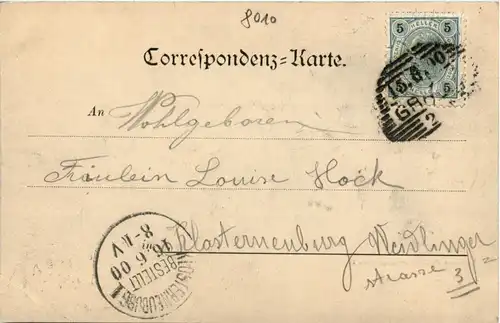 8010
5 HELLER 5
Correspondenz=Karte.
13.6.00
GRAZ
2
An Wohlgeboren
Fräulein Louise Hock
Klosterneuburg Weidlinger
strasse 3
8-11 V
16. 6. 00
BESTELLT
KLOSTERNEUBURG 1